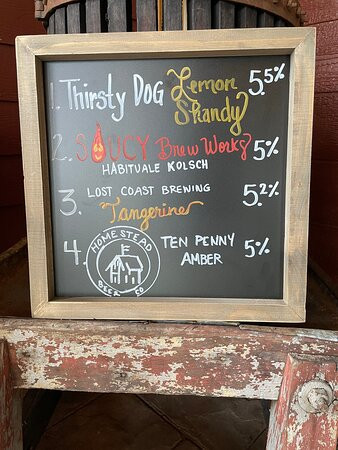 1. Thirsty Dog Lemon Shandy 5.5%
2. SAUCY Brew Works 5%
HABITUALE KOLSCH
3. LOST COAST BREWING 5.2%
Tangerine
4. HOMESTEAD BEER CO TEN PENNY AMBER 5%